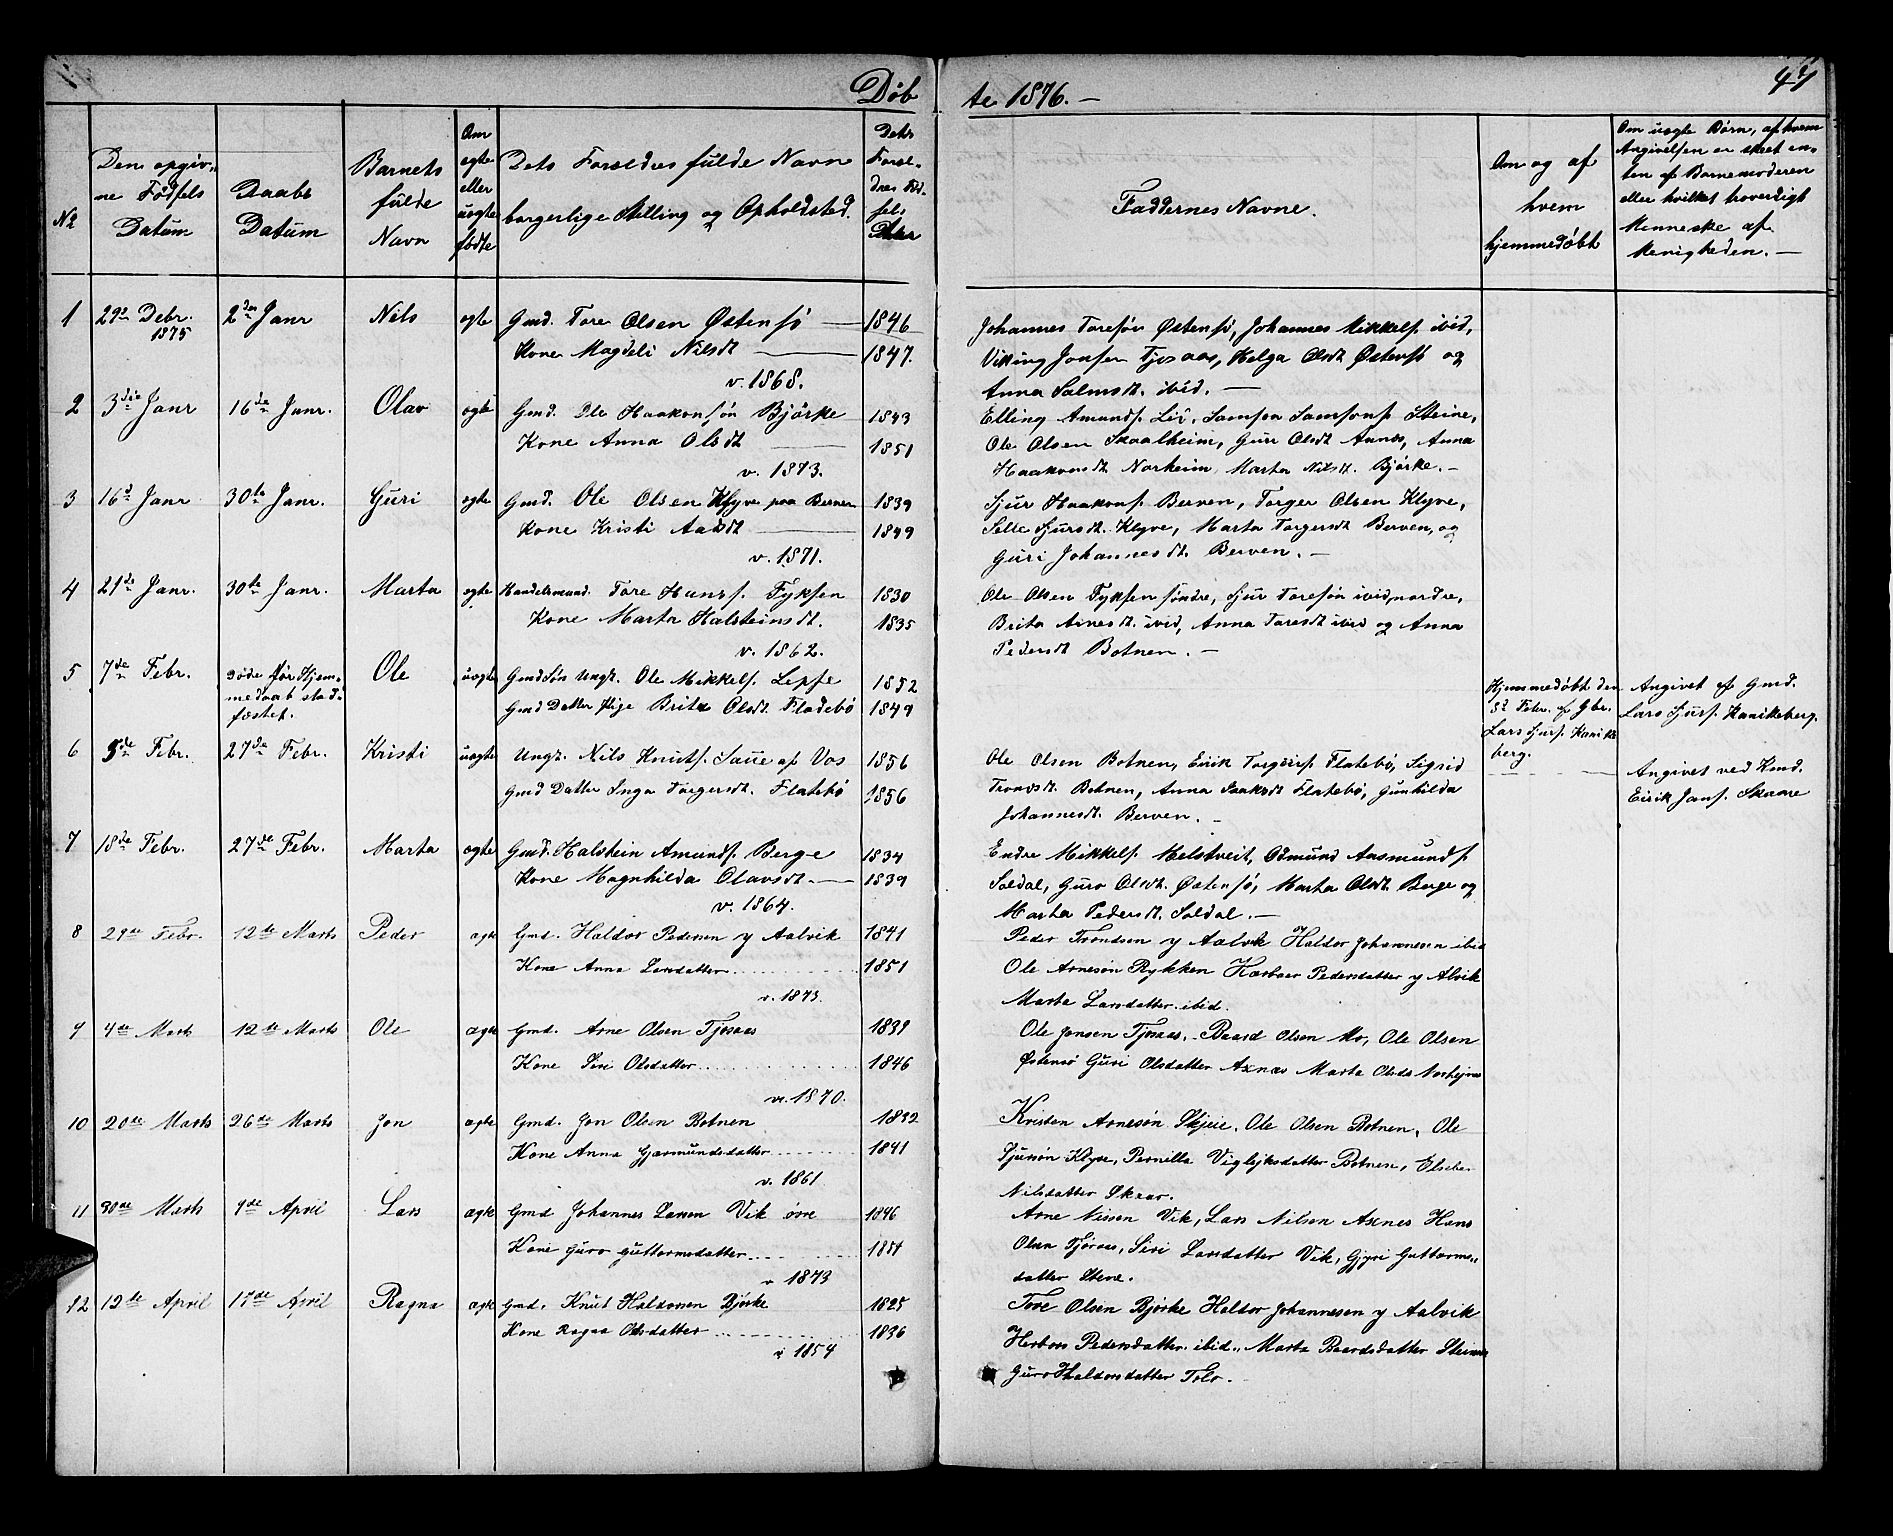 Døb
te 1876. —
47
No
Den opgiv-
ne Fødsels
Datum
Daabs
Datum
Barnets
fulde
Navn
Om
ægte
eller
uægte
fødte
Dets Forældres fulde Navne
borgerlige Stilling og Opholdsted.
Dets
Foræl-
dres Fød-
sels
Aar
Faddernes Navne.
Om og af
hvem
hjemmedøbt
Om uægte Børn, af hvem
Angivelsen er skeet en-
ten af Barnemoderen
eller hvilket troverdigt
Menneske af
Menigheden. —
1 29de Debr. 2den Janr Nils ægte Gmd. Tore Olsen Østensø — 1846
1875
Kone Magdeli Nilsdt — 1847.
v. 1868.
Johannes Toresøn Østensø, Johannes Mikkels. ivid,
Viking Jonsen Tjosaas, Helga Olsdt Østensø og
Anna Salmsdt. ivid. —
2 3die Janr 16de Janr. Olav ægte Gmd. Ole Haakonsøn Bjørke 1843
Kone Anna Olsdt — 1851
v. 1873.
Elling Amunds. Lii, Samson Samsons. Steine,
Ole Olsen Skaalheim, Guri Olsdt Axnes, Anna
Haakonsdt Norheim, Marta Nilsdt. Bjørke. —
3 16d Janr 30te Janr. Guri ægte Gmd. Ole Olsen Klyve paa Berven 1839
Kone Kristi Aadt — 1849
v. 1871.
Sjur Haakons. Berven, Torger Olsen Klyve,
Selle Sjursdt. Klyve, Marta Torgersdt Berven, og
Guri Johannesdt. Berven. —
4 21de Janr. 30te Janr. Marta ægte Handelsmand. Tore Hanss. Fyksen 1830
Kone Marta Halsteinsdt. 1835
v. 1862.
Ole Olsen Fyksen søndre, Sjur Toresøn ivid nordre,
Brita Arnesdt. ivid, Anna Toresdt ivid og Anna
Pedersdt Botnen. —
5 7de Febr. Døde før Hjem- Ole uægte Gmdsøn Ungk. Ole Mikkels. Lepse 1852
medaab stad-
fæstet.
Gmd Datter Pige Brita Olsdt. Fladebø 1849
Hjemmedøbt den
8d Febr. af Gbr.
Lars Sjurs. Kanike
berg.
Angivet af Gmd.
Lars Sjurs. Kanikeberg.
6 5de Febr. 27de Febr. Kristi uægte Ungk. Nils Knuts. Saue af Vos 1856
Gmd Datter Inga Torgersdt. Flatebø 1856
Ole Olsen Botnen, Eirik Torgers. Flatebø, Sigrid
Trondsdt. Botnen, Anna Isaksdt Flatebø, Gunhilda
Johannesdt. Berven. —
Angivet ved Kmd.
Eirik Jans. Skaare
7 18de Febr. 27de Febr. Marta ægte Gmd. Halstein Amunds. Berge 1834
Kone Magnhilda Olavsdt. — 1839
v. 1864.
Endre Mikkels. Melstveit, Odmund Aasmunds.
Soldal, Guro Olsdt. Østensø, Marta Olsdt Berge og
Marta Pedersdt. Soldal. —
8 29de Febr. 12te Marts Peder ægte Gmd. Haldor Pedersen y Aalvik 1841
Kone Anna Larsdatter 1851
v. 1873.
Peder Trondsen y Aalvik Haldor Johannesen ibid
Ole Arnesøn Rykken Herboer Pedersdatter y Alvik
Marta Larsdatter ibid.
9 4de Marts 12te Marts Ole ægte Gmd. Arne Olsen Tjosaas 1839
Kone Siri Olsdatter 1846
v. 1870.
Ole Jonsen Tjosaas, Baard Olsen Mo, Ole Olsen
Østensø Guri Olsdatter Axnæs Marta Olsdt
10 20de Marts 26de Marts Jon ægte Gmd. Jon Olsen Botnen 1832
Kone Anna Gjermundsdatter 1841
v. 1861
Kristen Arnesøn Skjeie, Ole Olsen Botnen, Ole
Sjursøn Klyve, Pernilla Viglejksdatter Botnen,
Nilsdatter Skaar.
11 30de Marts 9de April Lars ægte Gmd Johannes Larsen Vik øvre 1846
Kone Guro Guttormsdatter 1851
v 1873
Arne Nissen Vik, Lars Nilsen Axnes Hans
Olsen Tjosaas, Siri Larsdatter Vik, Gjyri Guttorms-
datter Stene.
12 12te April 17de April Ragna ægte Gmd. Knut Haldorsen Bjørke 1825
Kone Ragna Olsdatter 1836
v 1854
Tore Olsen Bjørke Haldor Johannesen y Aalvik
Herboer Pedersdatter ibid., Marta Baardsdatter Steine
Guro Haldorsdatter Tolo.